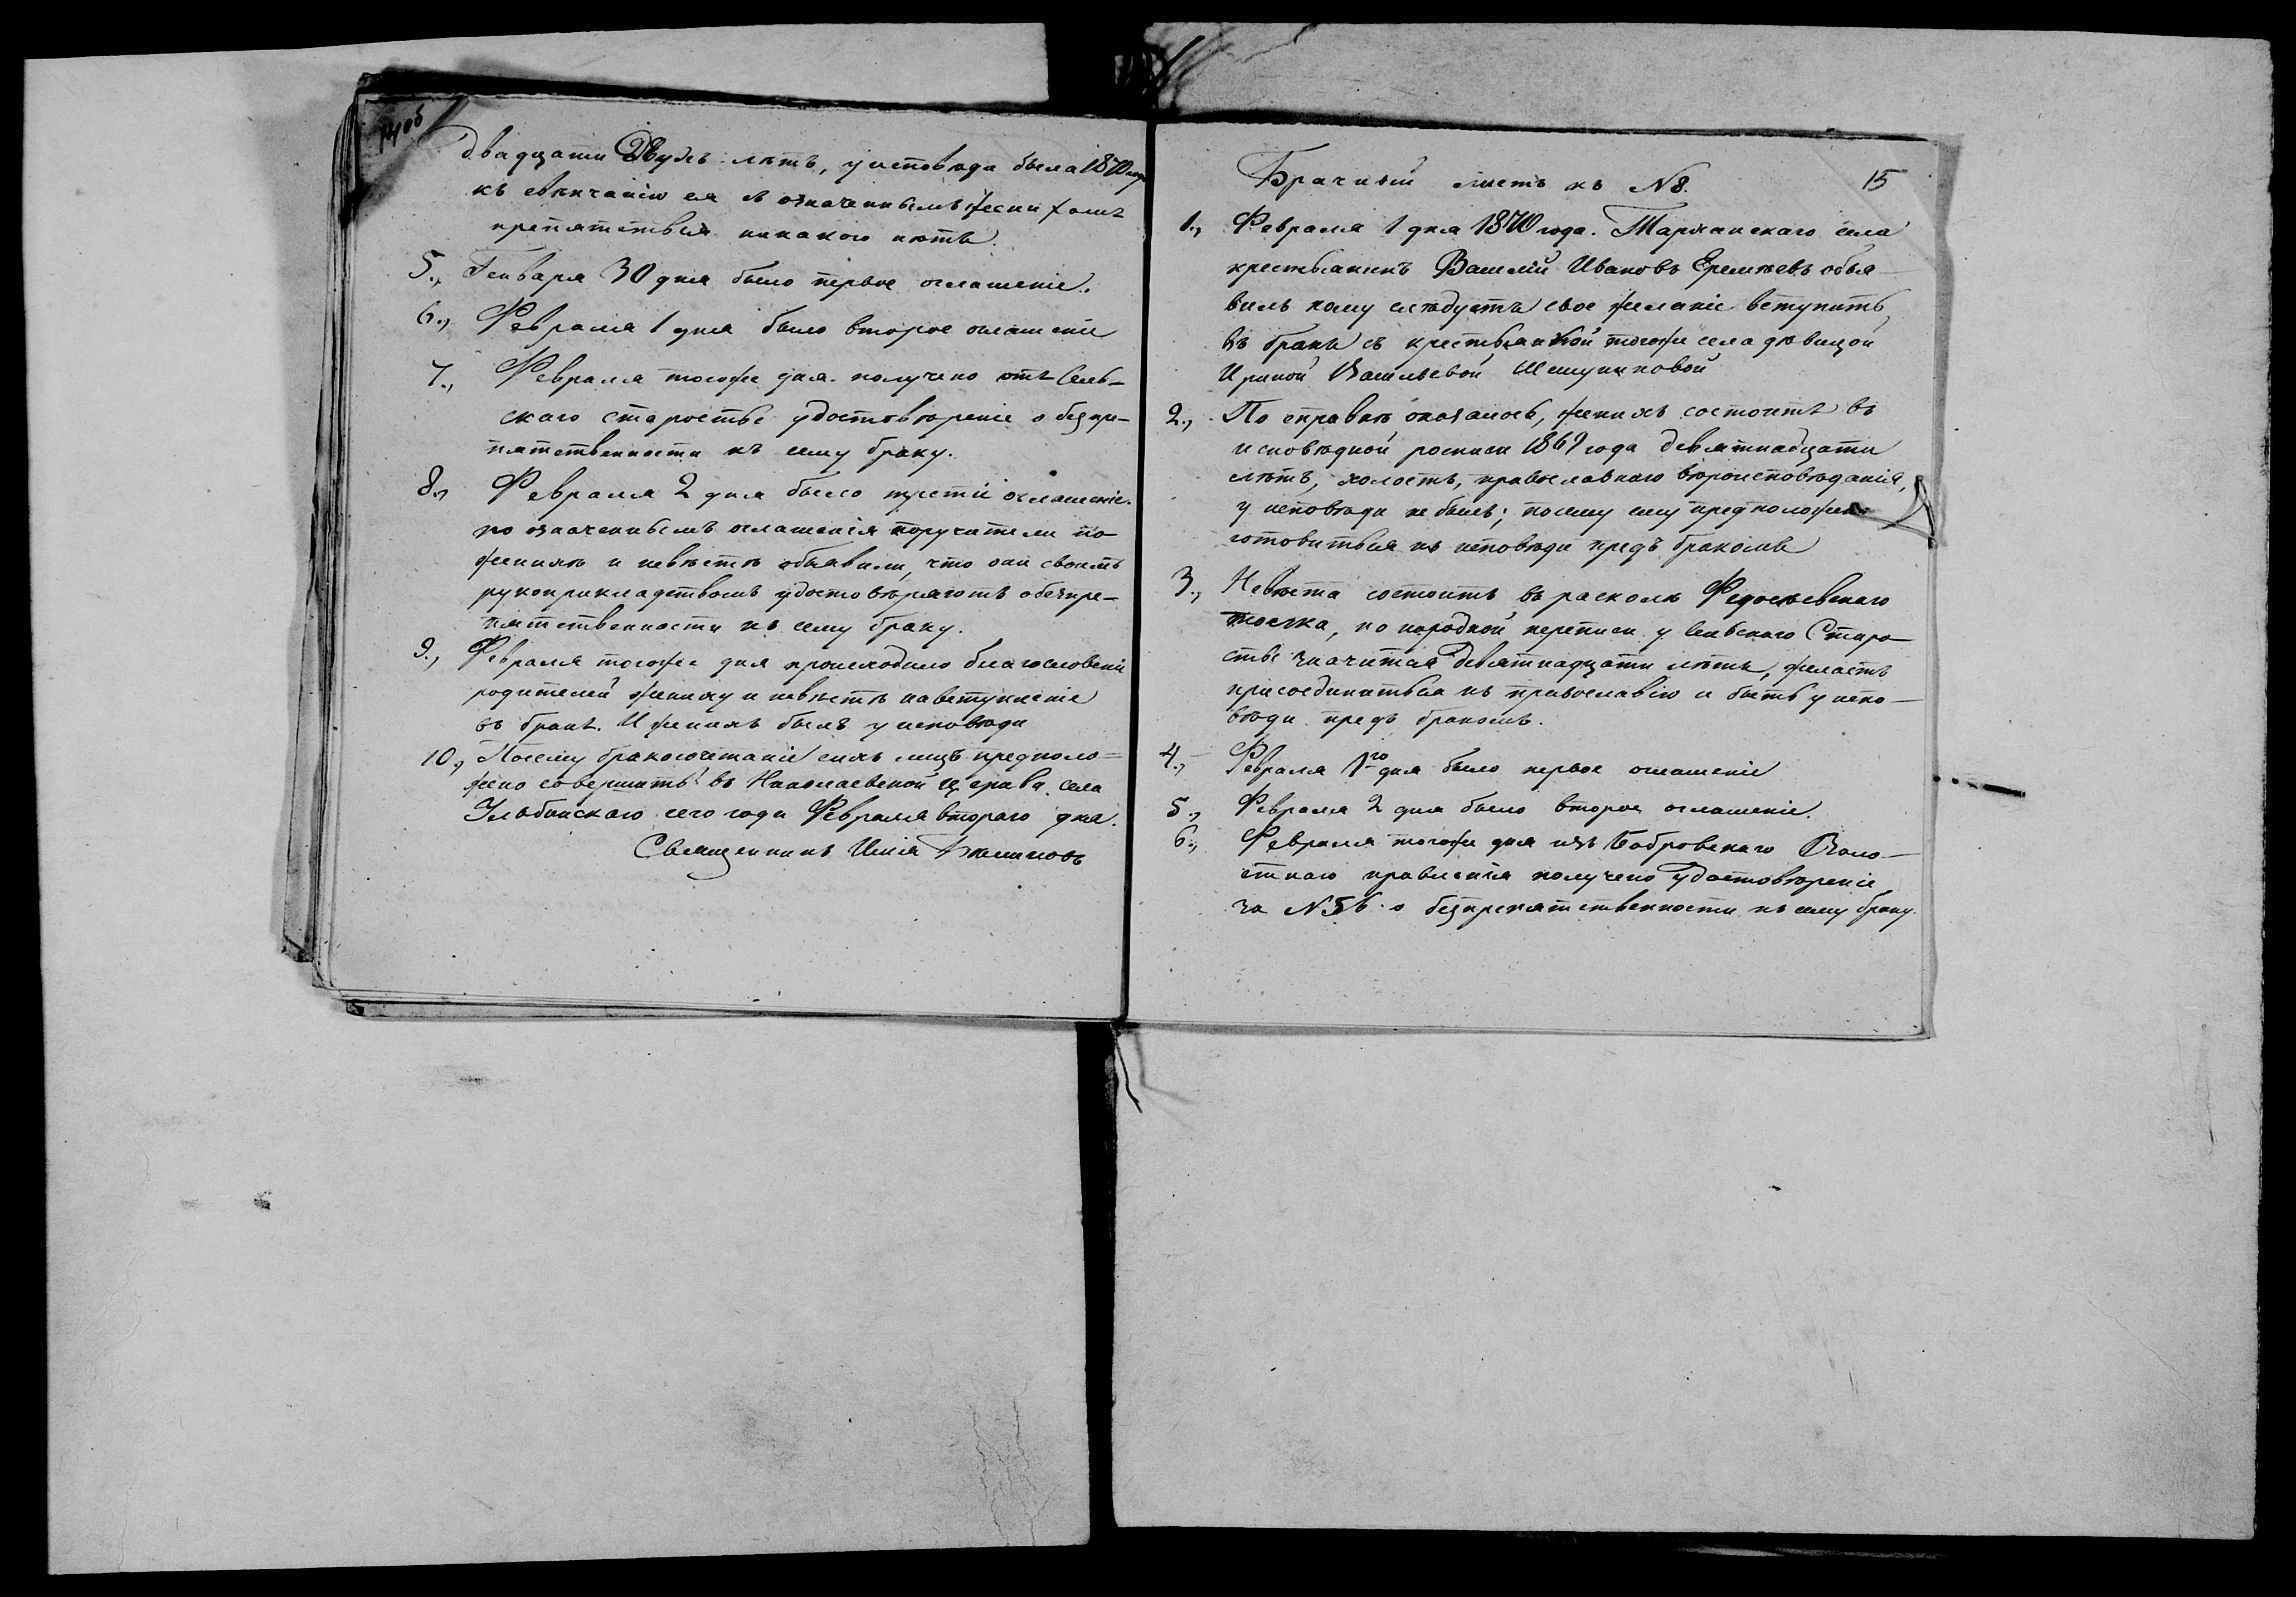 14об
двадцати двухъ лѣтъ, у исповѣди была 1870 года
къ свѣнчанію ея съ означеннымъ женихомъ
препятствія никакого нѣтъ.
5., Генваря 30 дня было первое оглашеніе.
6., Февраля 1 дня было второе оглашеніе
7., Февраля тогоже дня получено отъ Сель-
скаго старосты удостовѣреніе о безпре-
пятственности къ сему браку.
8., Февраля 2 дня было третіе оглашеніе.
по означеннымъ оглашенія поручители по
женихѣ и невѣстѣ объявили, что они своимъ
рукоприкладствомъ удостовѣряютъ о безпре-
пятственности къ сему браку.
9., Февраля тогоже дня происходило благословеніе
родителей жениху и невѣстѣ на вступленіе
въ бракъ. И женихъ былъ у исповѣди
10., Посему бракосочетаніе сихъ лицъ предполо=
жено совершить въ Николаевской церкви села
Ульбинскаго сего года Февраля втораго дня.
Священникъ Илія
Брачный листъ къ N 8.
15
1., Февраля 1 дня 1870 года. Тарханскаго села
крестьянинъ Василій Ивановъ Еремѣевъ объя-
вилъ кому слѣдуетъ свое желаніе вступить
въ бракъ съ крестьянкой тогоже села дѣвицой
Ириной Васильевой
2., По справкѣ оказалось, женихъ состоитъ въ
исповѣдной росписи 1869 года девятнадцати
лѣтъ, холостъ, православнаго вѣроисповѣданія,
у исповѣди не былъ; посему ему предположено
готовиться къ исповѣди предъ бракомъ
3., Невѣста состоитъ въ расколѣ Федосѣевскаго
толка, по народной переписи у Сельскаго Старо-
сты значится девятнадцати лѣтъ, желаетъ
присоединиться къ православію и быть у испо-
вѣди предъ бракомъ.
4., Февраля 1го дня было первое оглашеніе
5., Февраля 2 дня было второе оглашеніе.
6., Февраля тогоже дня изъ Бобровскаго Воло-
стнаго правленія получено удостовѣреніе
за N 56 о безпрепятственности къ сему браку.